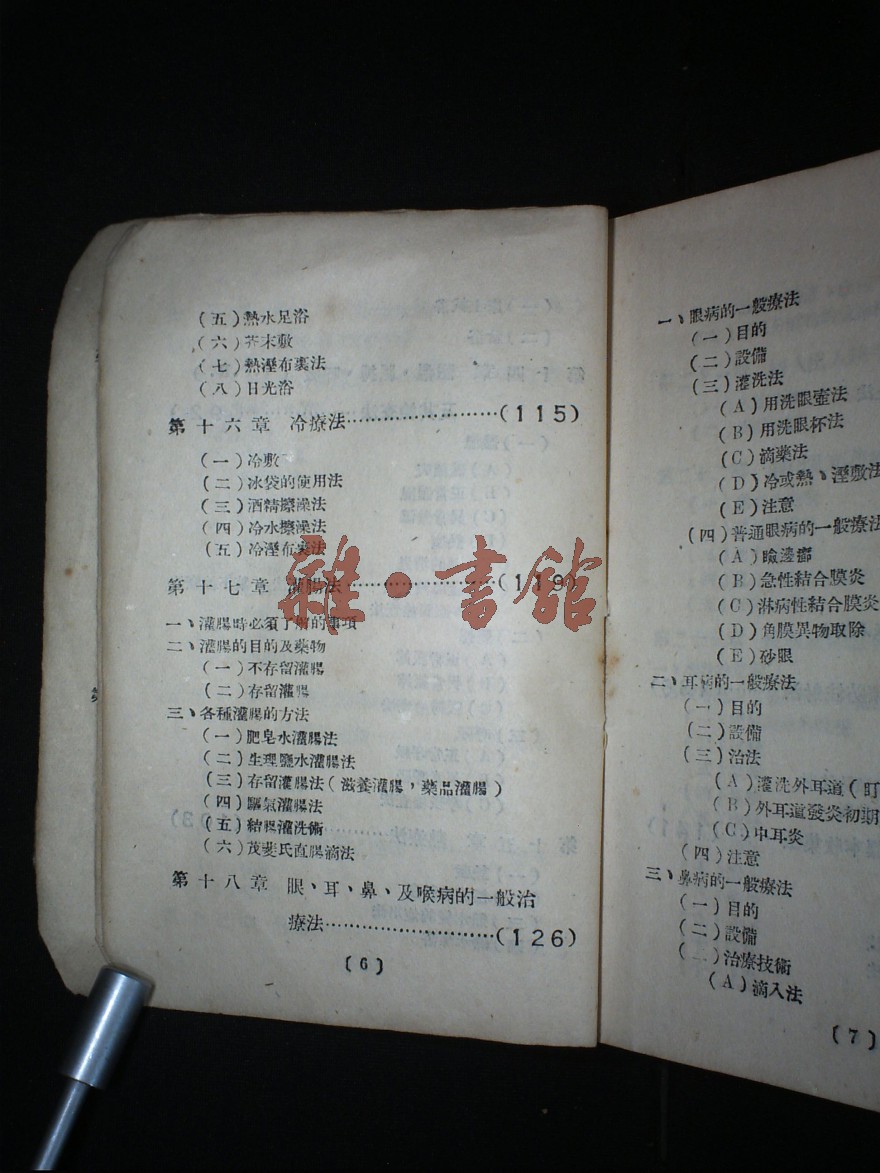 (五)熱水足浴
(六)芥末敷
(七)熱溼布裹法
(八)日光浴
第十六章 冷療法……………………(115)
(一)冷敷
(二)冰袋的使用法
(三)酒精擦澡法
(四)冷水擦澡法
(五)冷溼布裹法
第十七章 灌腸法……………………(119)
一、灌腸時必須了解的事項
二、灌腸的目的及藥物
(一)不存留灌腸
(二)存留灌腸
三、各種灌腸的方法
(一)肥皂水灌腸法
(二)生理鹽水灌腸法
(三)存留灌腸法(滋養灌腸,藥品灌腸)
(四)驅氣灌腸法
(五)結腸灌洗術
(六)茂斐氏直腸滴法
第十八章 眼、耳、鼻、及喉病的一般治
療法……………………(126)
(6)
雜·書館
一、眼病的一般療法
(一)目的
(二)設備
(三)灌洗法
(A)用洗眼壺法
(B)用洗眼杯法
(C)滴藥法
(D)冷或熱、溼敷法
(E)注意
(四)普通眼病的一般療法
(A)瞼邊癤
(B)急性結合膜炎
(C)淋病性結合膜炎
(D)角膜異物取除
(E)砂眼
二、耳病的一般療法
(一)目的
(二)設備
(三)治法
(A)灌洗外耳道(盯
(B)外耳道發炎初期
(C)中耳炎
(四)注意
三、鼻病的一般療法
(一)目的
(二)設備
(三)治療技術
(A)滴入法
(7)